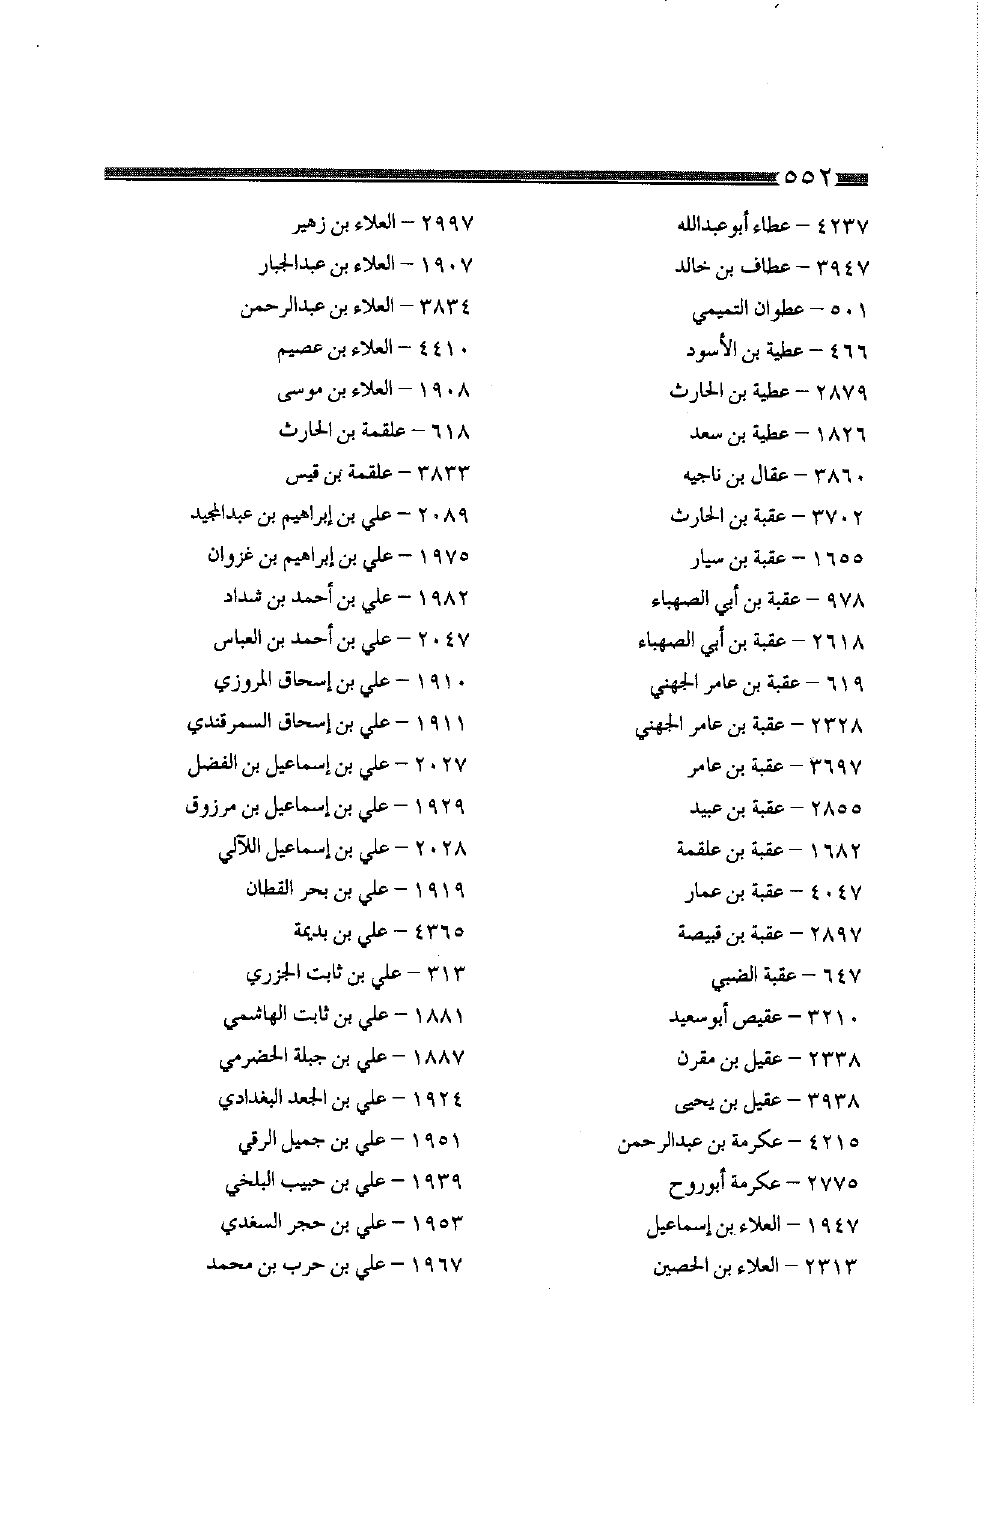 ٥٥٢
٤٢٣٧ – عطاء أبوعبدالله
٣٩٤٧ – عطاف بن خالد
٥٠١ – عطوان التميمي
٤٦٦ – عطية بن الأسود
٢٨٧٩ – عطية بن الحارث
١٨٢٦ – عطية بن سعد
٣٨٦٠ – عقال بن ناجيه
٣٧٠٢ – عقبة بن الحارث
١٦٥٥ – عقبة بن سيار
٩٧٨ – عقبة بن أبي الصهباء
٢٦١٨ – عقبة بن أبي الصهباء
٦١٩ – عقبة بن عامر الجهني
٢٣٢٨ – عقبة بن عامر الجهني
٣٦٩٧ – عقبة بن عامر
٢٨٥٥ – عقبة بن عبيد
١٦٨٢ – عقبة بن علقمة
٤٠٤٧ – عقبة بن عمار
٢٨٩٧ – عقبة بن قبيصة
٦٤٧ – عقبة الضبي
٣٢١٠ – عقيص أبوسعيد
٢٣٣٨ – عقيل بن مقرن
٣٩٣٨ – عقيل بن يحيى
٤٢١٥ – عكرمة بن عبدالرحمن
٢٧٧٥ – عكرمة أبوروح
١٩٤٧ – العلاء بن إسماعيل
٢٣١٣ – العلاء بن الحصين
٢٩٩٧ – العلاء بن زهير
١٩٠٧ – العلاء بن عبدالجبار
٣٨٣٤ – العلاء بن عبدالرحمن
٤٤١٠ – العلاء بن عصيم
١٩٠٨ – العلاء بن موسى
٦١٨ – علقمة بن الحارث
٣٨٣٣ – علقمة بن قيس
٢٠٨٩ – علي بن إبراهيم بن عبدالمجيد
١٩٧٥ – علي بن إبراهيم بن غزوان
١٩٨٢ – علي بن أحمد بن شداد
٢٠٤٧ – علي بن أحمد بن العباس
١٩١٠ – علي بن إسحاق المروزي
١٩١١ – علي بن إسحاق السمرقندي
٢٠٢٧ – علي بن إسماعيل بن الفضل
١٩٢٩ – علي بن إسماعيل بن مرزوق
٢٠٢٨ – علي بن إسماعيل اللآلي
١٩١٩ – علي بن بحر القطان
٤٣٦٥ – علي بن بذيمة
٣١٣ – علي بن ثابت الجزري
١٨٨١ – علي بن ثابت الهاشمي
١٨٨٧ – علي بن جبلة الحضرمي
١٩٢٤ – علي بن الجعد البغدادي
١٩٥١ – علي بن جميل الرقي
١٩٣٩ – علي بن حبيب البلخي
١٩٥٣ – علي بن حجر السغدي
١٩٦٧ – علي بن حرب بن محمد